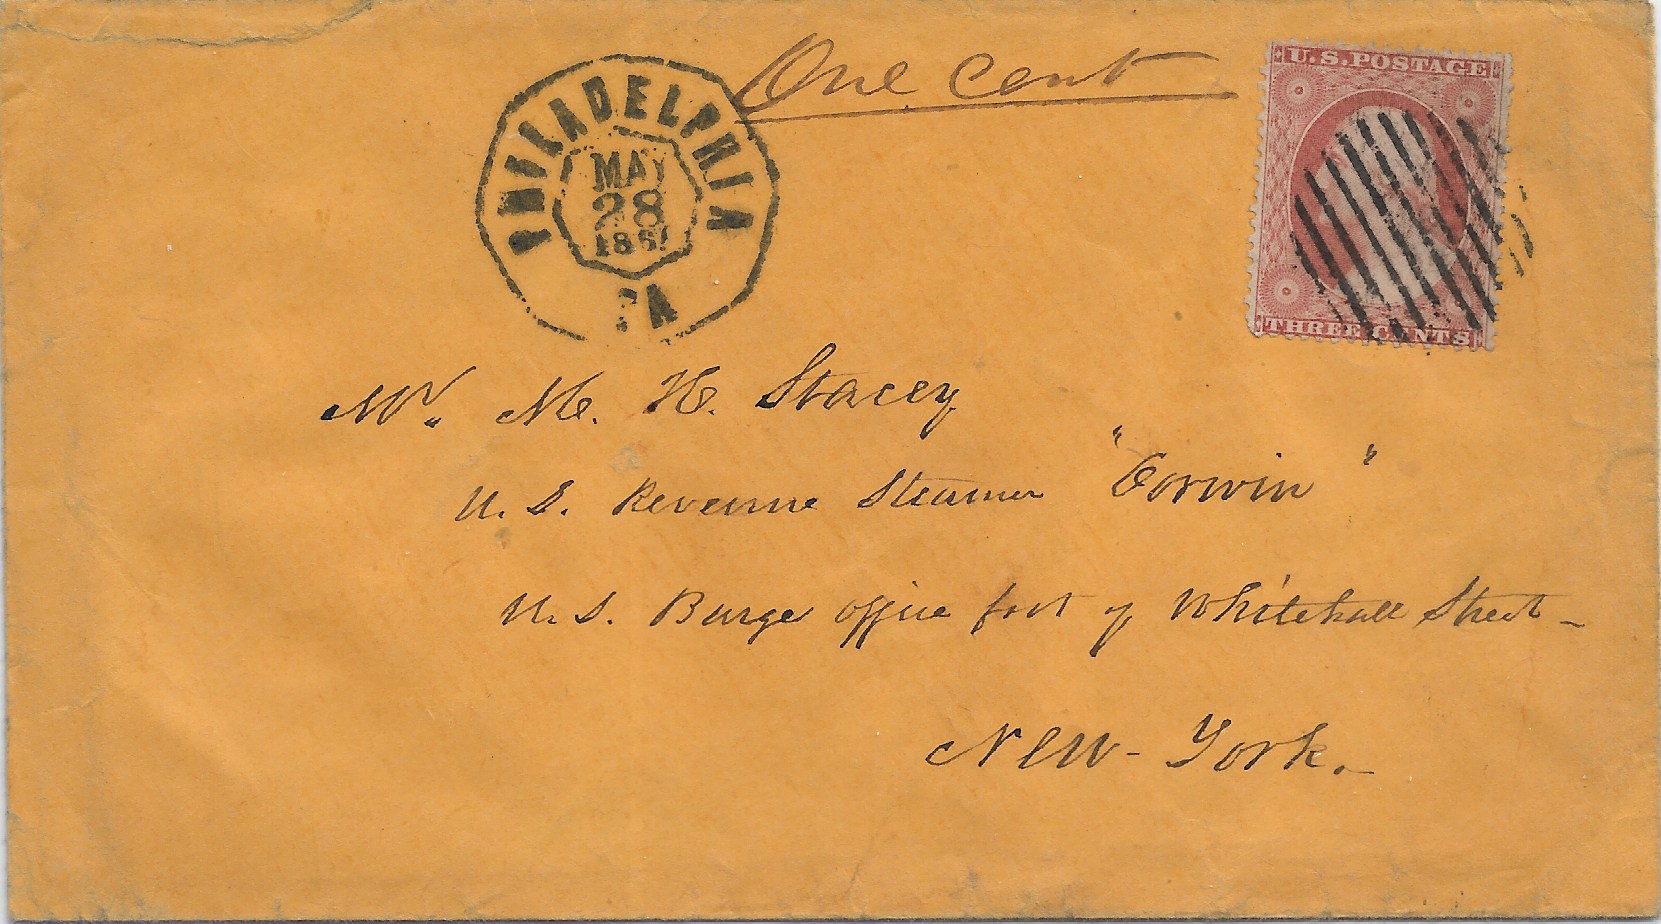 One cent
U.S. POSTAGE
THREE CENTS
PHILADELPHIA
MAY
28
1861
PA
Mr. M. H. Stacey
U. S. Revenue Steamer "Corwin"
U. S. Barge office foot of Whitehall Street -
New-York.